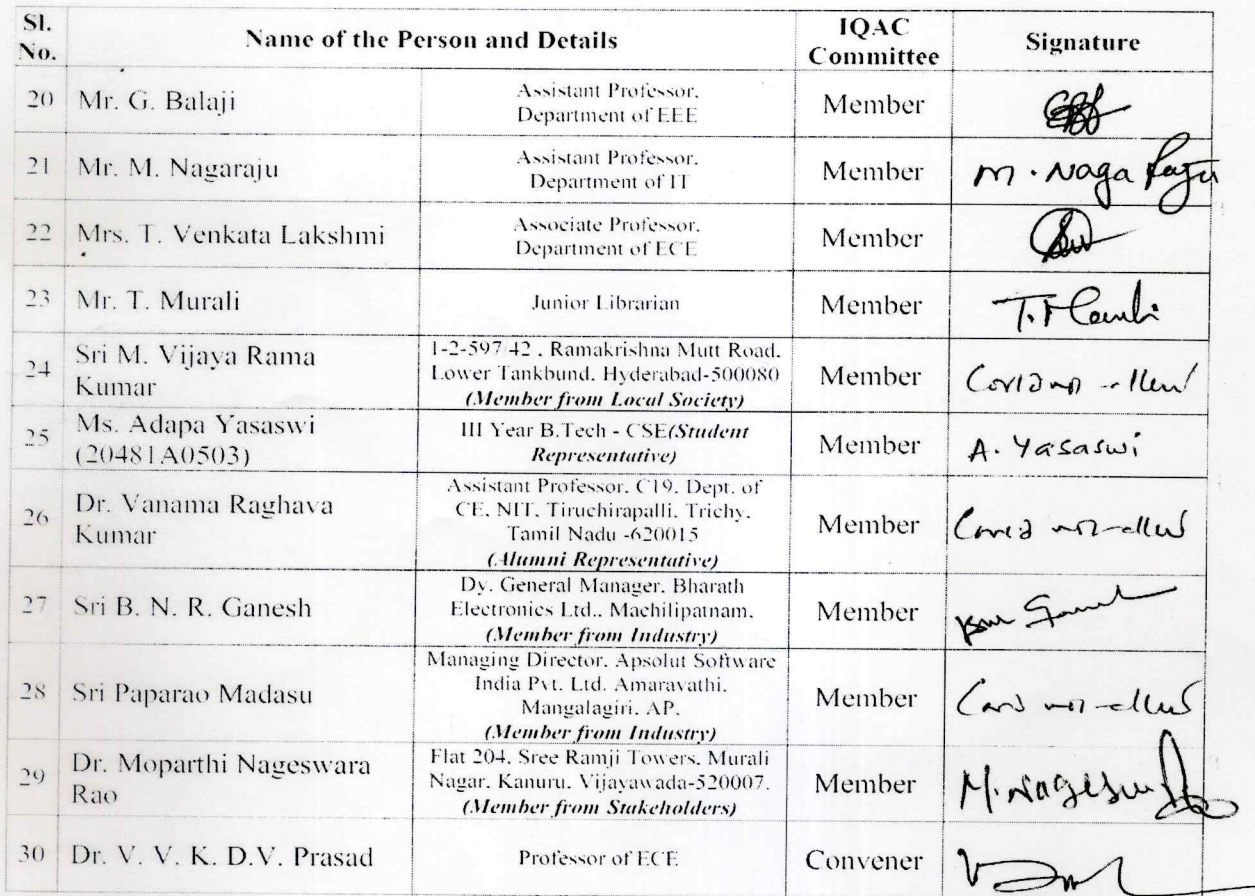 Sl. No. Name of the Person and Details IQAC Committee Signature
20 Mr. G. Balaji Assistant Professor, Department of EEE Member
21 Mr. M. Nagaraju Assistant Professor, Department of IT Member M. Naga Raju
22 Mrs. T. Venkata Lakshmi Associate Professor, Department of ECE Member
23 Mr. T. Murali Junior Librarian Member
24 Sri M. Vijaya Rama Kumar 1-2-597/42 , Ramakrishna Mutt Road, Lower Tankbund, Hyderabad-500080 (Member from Local Society) Member
25 Ms. Adapa Yasaswi (20481A0503) III Year B.Tech - CSE(Student Representative) Member A. Yasaswi
26 Dr. Vanama Raghava Kumar Assistant Professor, C19, Dept. of CE, NIT, Tiruchirapalli, Trichy, Tamil Nadu -620015 (Alumni Representative) Member
27 Sri B. N. R. Ganesh Dy. General Manager, Bharath Electronics Ltd., Machilipatnam, (Member from Industry) Member
28 Sri Paparao Madasu Managing Director, Apsolut Software India Pvt. Ltd. Amaravathi, Mangalagiri, AP, (Member from Industry) Member
29 Dr. Moparthi Nageswara Rao Flat 204, Sree Ramji Towers, Murali Nagar, Kanuru, Vijayawada-520007. (Member from Stakeholders) Member
30 Dr. V. V. K. D.V. Prasad Professor of ECE Convener